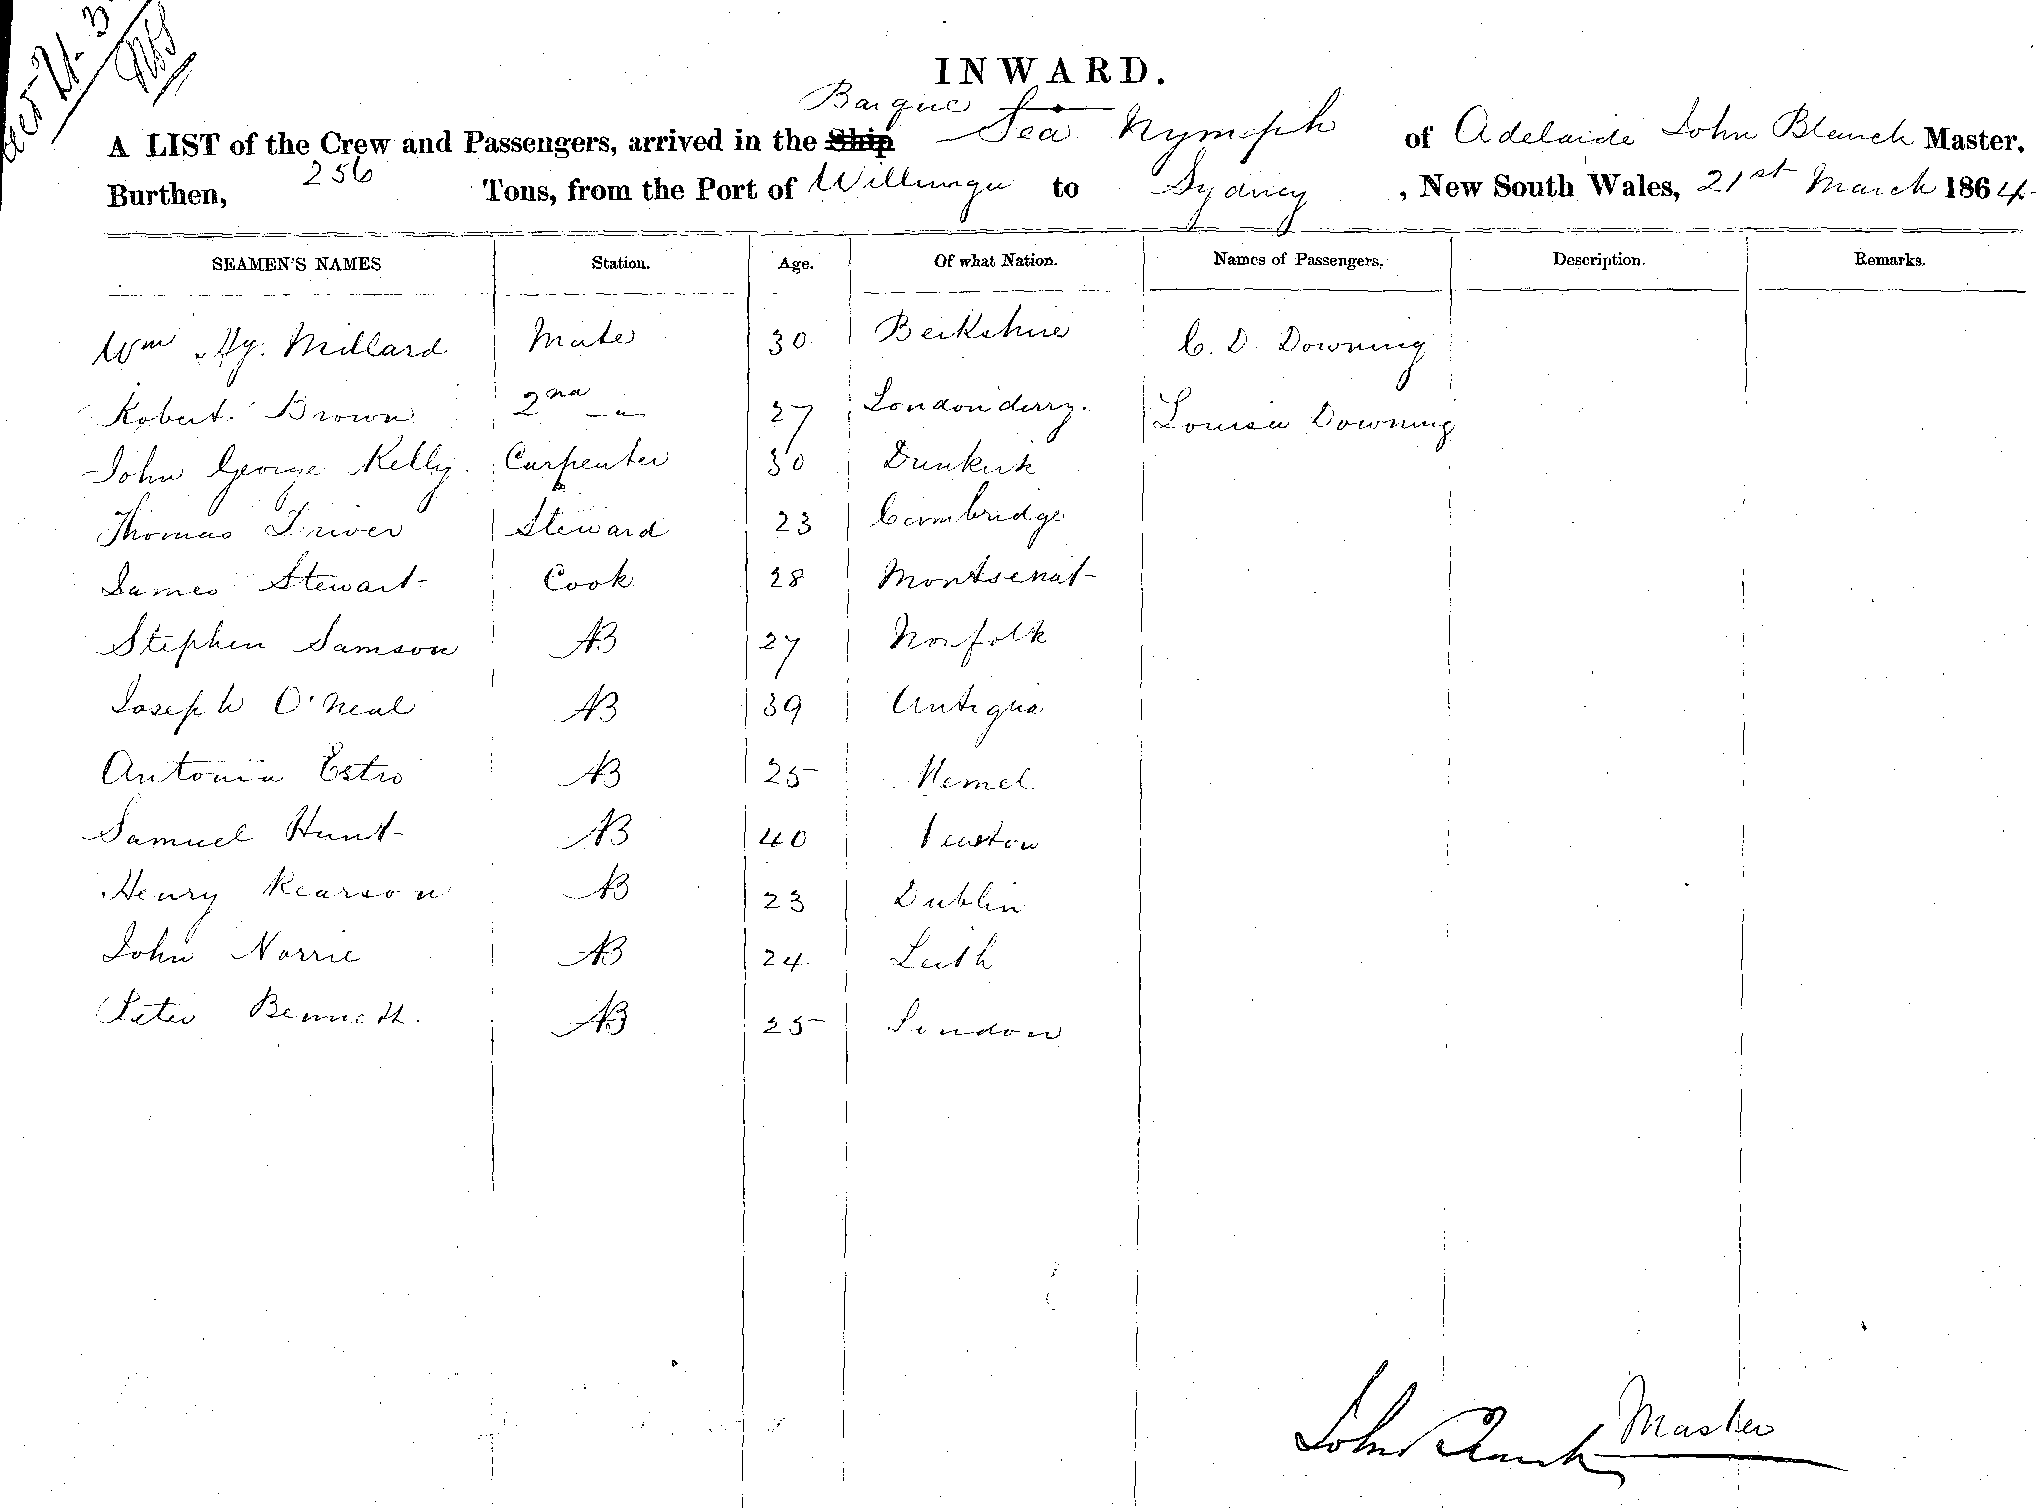 INWARD.
Barque
A LIST of the Crew and Passengers, arrived in the Ship Sea Nymph of Adelaide John Blanch Master,
Burthen, 256 Tons, from the Port of Willunga to Sydney, New South Wales, 21st March 1864
SEAMEN'S NAMES Station. Age. Of what Nation. Names of Passengers. Description. Remarks.
Wm Hy. Millard Mate 30 Berkshire C. D. Downing
Robert Brown 2nd " 27 Londonderry. Louisa Downing
John George Kelly. Carpenter 30 Dunkirk
Thomas Driver Steward 23 Cambridge
James Stewart Cook 28 Montserrat
Stephen Samson AB 27 Norfolk
Joseph O'Neal AB 39 Antigua
Antonia Estro AB 25 Memel
Samuel Hunt AB 40
Henry Rearson AB 23 Dublin
John Norrie AB 24 Leith
Peter Bennett. AB 25 London
John Blanch Master